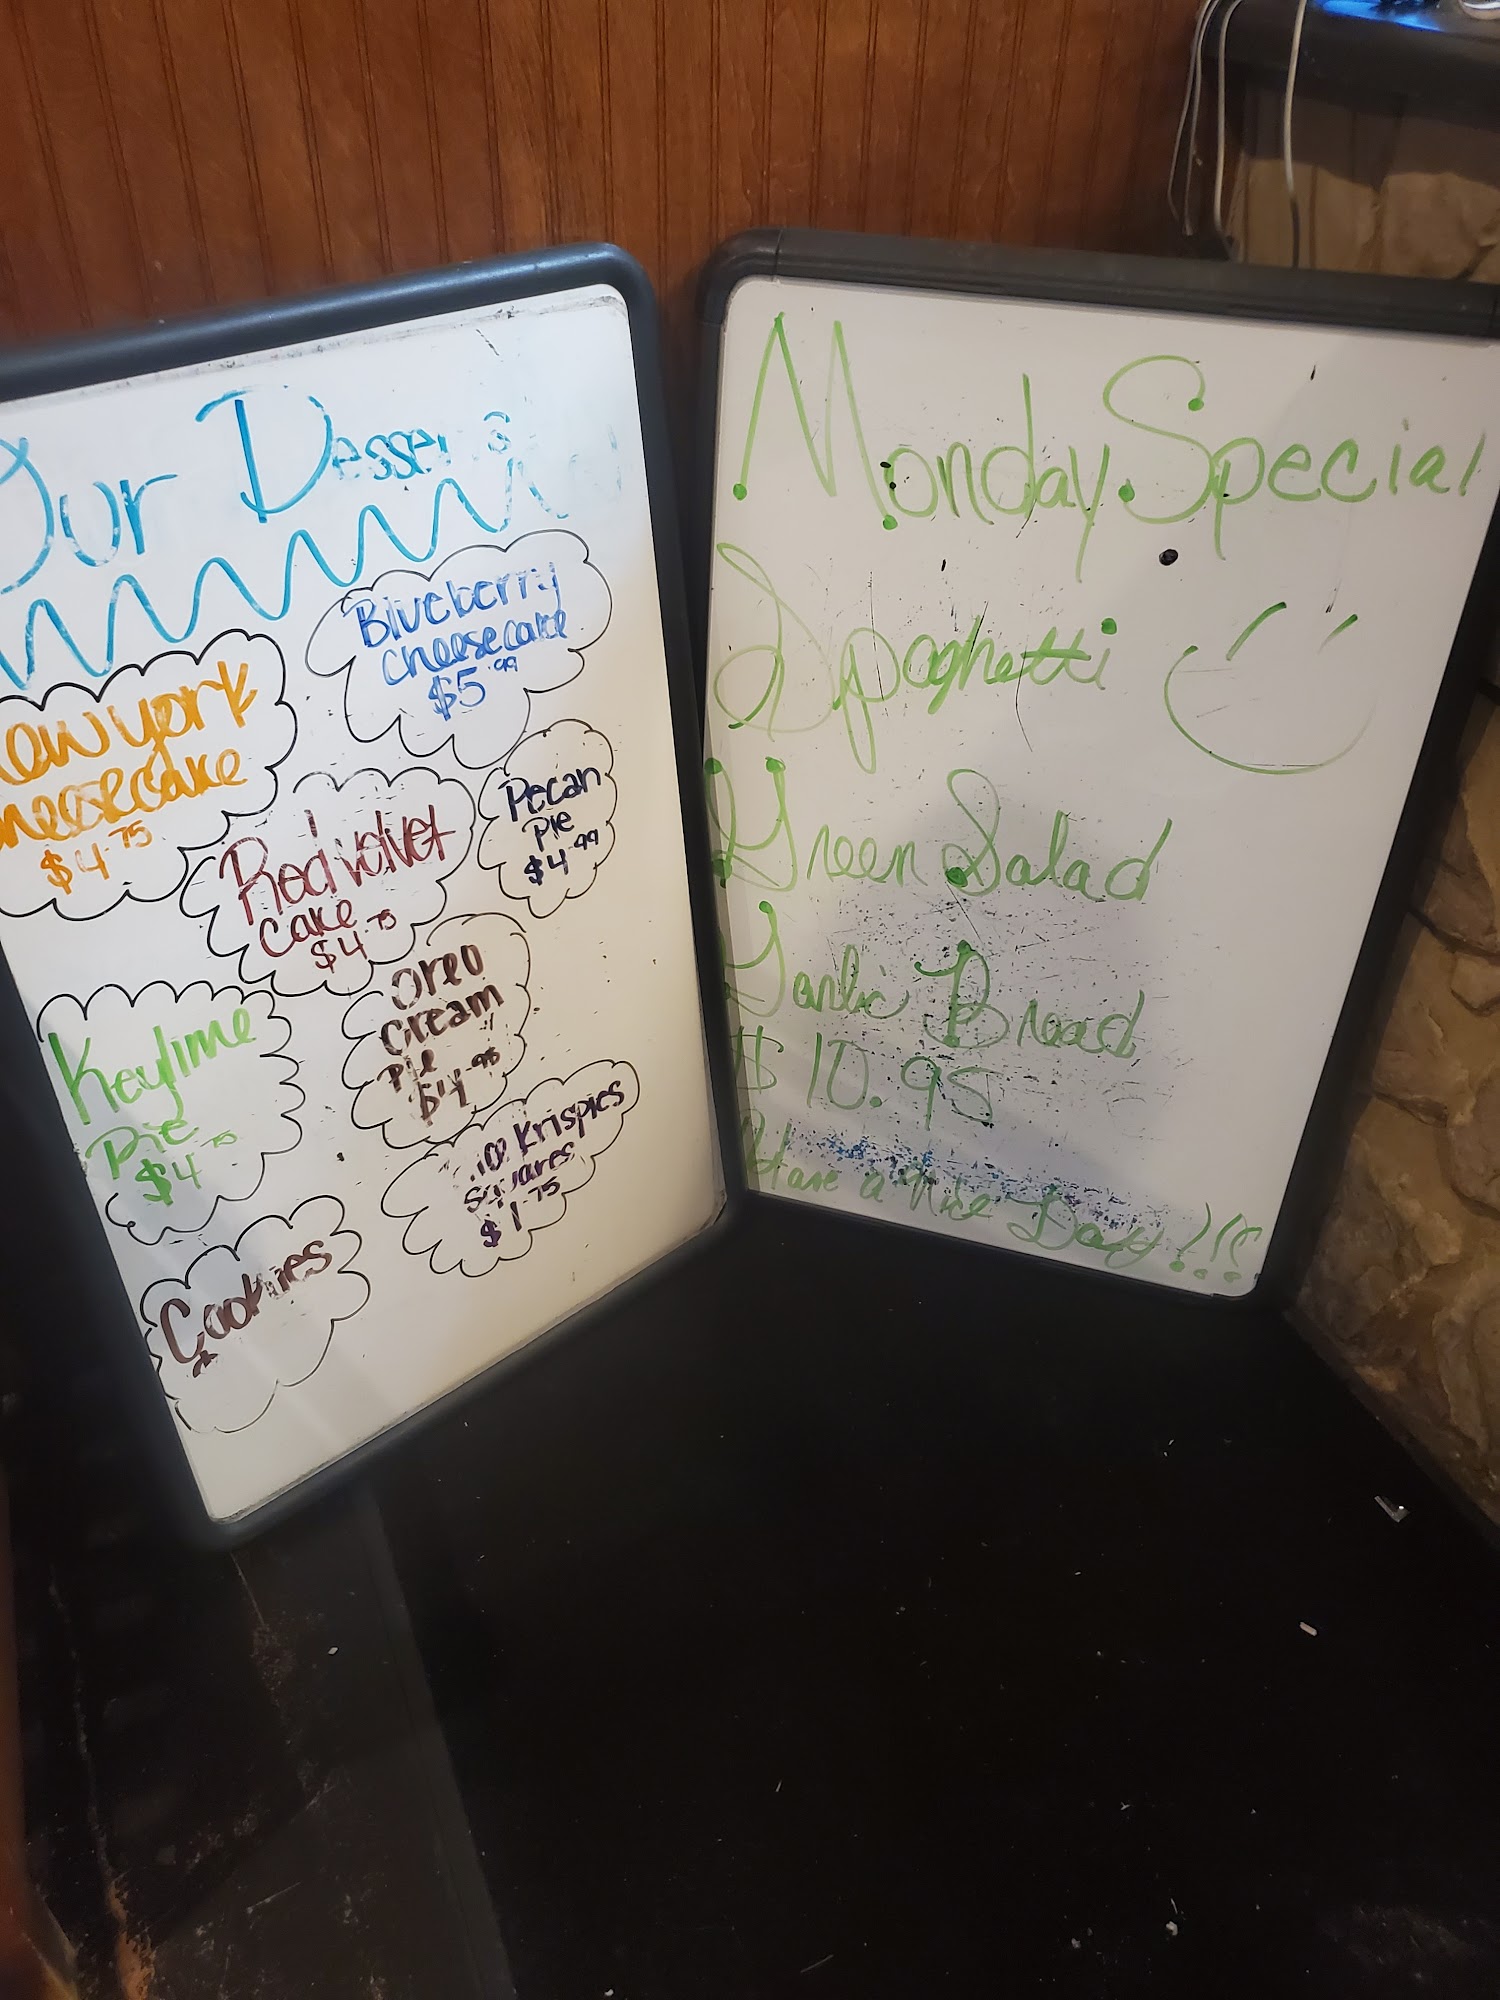 Our Desserts
Blueberry
Cheesecake
$5.99
New york
cheesecake
$4.75
Pecan
Pie
$4.99
Red velvet
Cake
$4.75
Oreo
Cream
Pie
$4.95
Keylime
Pie
$4.75
Krispies
Squares
$1.75
Cookies
Monday Special
Spaghetti
Green Salad
Garlic Bread
$10.95
Have a Nice Day!!!